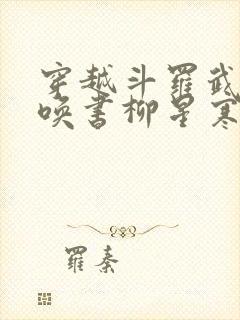 穿越斗罗武
唤书柳星寒
罗秦